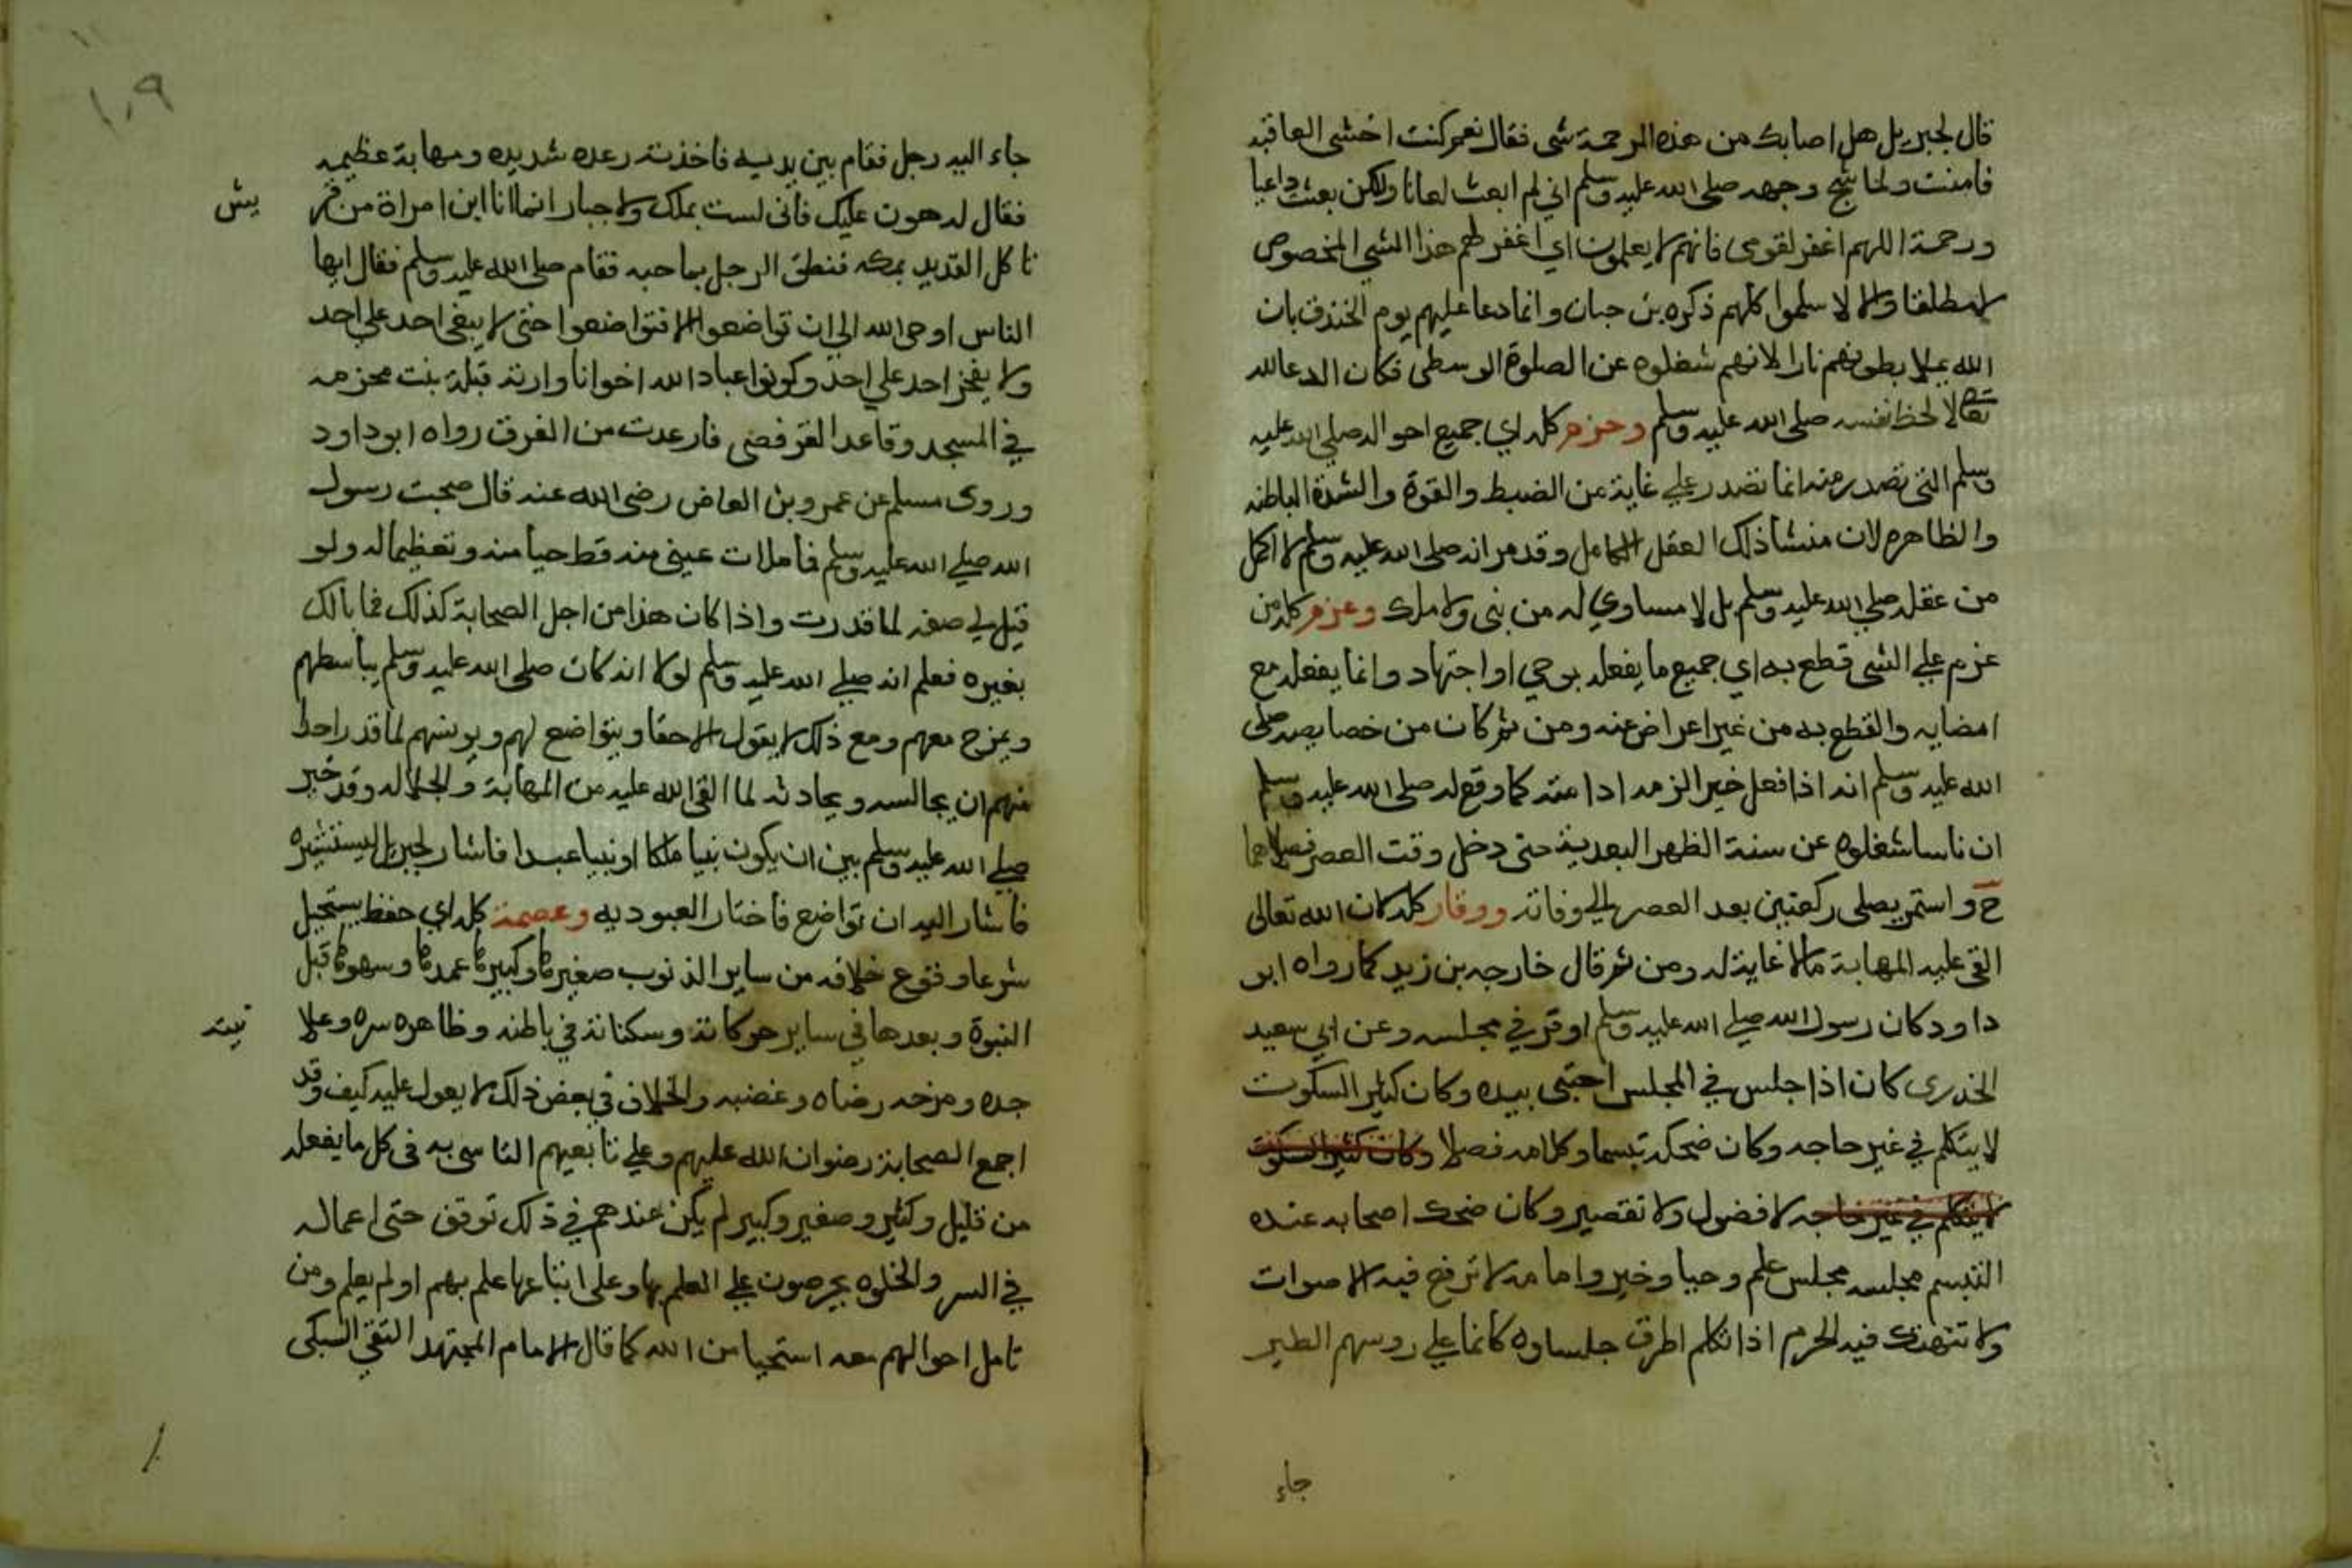 قال لجبريل هل اصابك من هذه الرحمة شي فقال نعم كنت اخشى العاقبه
فامنت ولما شج وجهه صلى الله عليه وسلم اني لم ابعث لعانا ولكن بعثت داعيا
ورحمة اللهم اغفر لقومى فانهم لا يعلمون اي اغفر لهم هذا الشي المخصوص
لا مطلقا والا لاسلموا كلهم ذكره بن حبان وانما دعا عليهم يوم الخندق بان
الله يملا بطونهم نارا لانهم شغلوه عن الصلوة الوسطى فكان الدعا لله
تعالا لا لحظ نفسه صلى الله عليه وسلم وحزم كله اي جميع احواله صلى الله عليه
وسلم التى تصدر منه انما تصدر علي غاية من الضبط والقوة والشدة الباطنه
والظاهره لان منشا ذلك العقل الكامل وقد مر انه صلى الله عليه وسلم لا اكمل
من عقله صلي الله عليه وسلم بل لا مساوي له من نبى ولا ملك وعزم كله من
عزم علي الشى قطع به اي جميع ما يفعله بوحي او اجتهاد وانما يفعله مع
امضايه والقطع به من غير اعراض عنه ومن ثم كان من خصايصه صلى
الله عليه وسلم انه اذا فعل خيرا لزمه ادامته كما وقع له صلى الله عليه وسلم
ان ناسا شغلوه عن سنة الظهر البعدية حتى دخل وقت العصر فصلاهما
ح واستمر يصلى ركعتين بعد العصر الي وفاته ووقار كله كان الله تعالى
القى عليه المهابة ما لا غاية له ومن ثم قال خارجه بن زيد كما رواه ابو
داود كان رسول الله صلي الله عليه وسلم اوقر في مجلسه وعن ابي سعيد
الخدرى كان اذا جلس في المجلس احتبى بيده وكان كثير السكوت
لا يتكلم في غير حاجه وكان ضحكه تبسما وكلامه فصلا وكان كثير السكوت
لا يتكلم في غير حاجه لا فضول ولا تقصير وكان ضحك اصحابه عنده
التبسم مجلسه مجلس علم وحيا وخير وامامه لا ترفع فيه الاصوات
ولا تنتهك فيه الحرم اذا تكلم اطرق جلساوه كانما علي روسهم الطير
جاء
١٠٩
جاء اليه رجل فقام بين يديه فاخذته رعده شديده ومهابة عظيمه
فقال له هون عليك فانى لست بملك ولا جبار انما انا ابن امراة من قر
يش
تاكل القديد بمكه فنطق الرجل بحاجبه فقام صلى الله عليه وسلم فقال ايها
الناس اوحى الله الي ان تواضعوا الا فتواضعوا حتى لا يبغى احد على احد
ولا يفخر احد علي احد وكونوا عباد الله اخوانا وارته قيلة بنت مخزمه
في المسجد وقاعد القرفصى فارعدت من الفرق رواه ابو داود
وروى مسلم عن عمرو بن العاص رضى الله عنه قال صحبت رسول
الله صلي الله عليه وسلم فاملات عينى منه قط حيا منه وتعظيما له ولو
قيل لي صفه لما قدرت واذا كان هذا من اجل الصحابة كذلك فما بالك
بغيره فعلم انه صلي الله عليه وسلم لولا انه كان صلى الله عليه وسلم يباسطهم
ويمزح معهم ومع ذلك لا يقول الا حقا ويتواضع لهم ويونسهم لما قدر احد
منهم ان يجالسه ويحادثه لما القى الله عليه من المهابة والجلاله وقد خير
صلي الله عليه وسلم بين ان يكون نبيا ملكا او نبيا عبدا فاشار لجبريل ليستشيره
فاشار اليه ان تواضع فاختار العبوديه وعصمة كله اي حفظ يستحيل
شرعا وقوع خلافه من ساير الذنوب صغيرها وكبيرها عمدها وسهوها قبل
النبوة وبعدها في ساير حركاته وسكناته في باطنه وظاهره سره وعلا
نيته
جده ومزحه رضاه وغضبه والخلاف في بعض ذلك لا يعول عليه كيف وقد
اجمع الصحابة رضوان الله عليهم وعلي تابعيهم التاسى به فى كل ما يفعله
من قليل وكثير وصغير وكبير لم يكن عندهم في ذلك توقف حتى اعماله
في السر والخلوه يحرصون علي العلم بها وعلى اتباعها علم بهم او لم يعلم ومن
تامل احوالهم معه استحيا من الله كما قال الامام المجتهد التقي السبكى